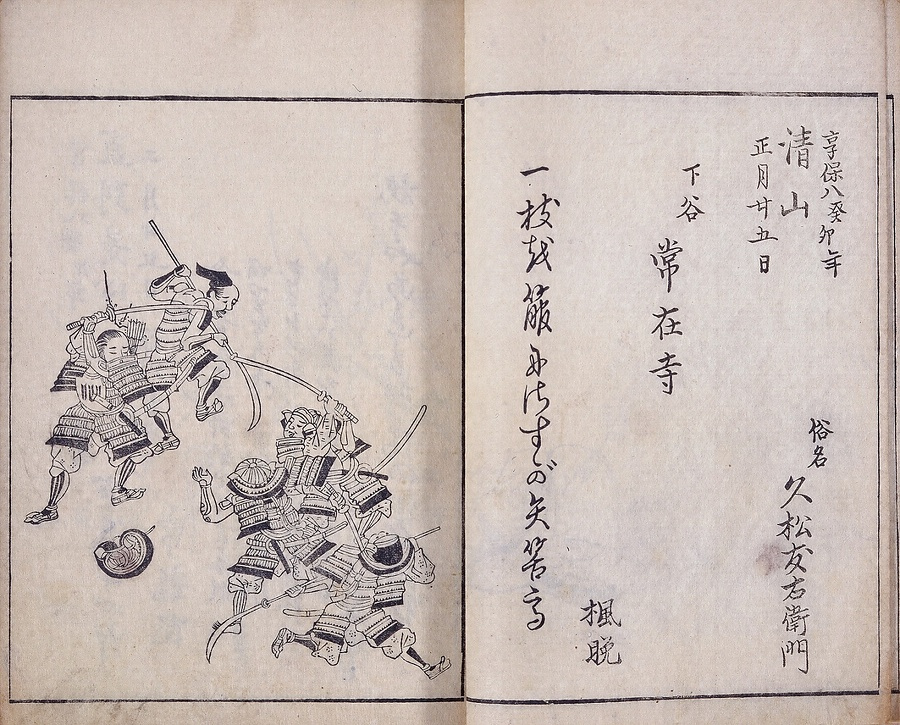 享保八癸卯年
清山
正月廿五日
俗名 久松友右衛門
下谷 常在寺
一枝越箙尓けすか矢筈
楓晩